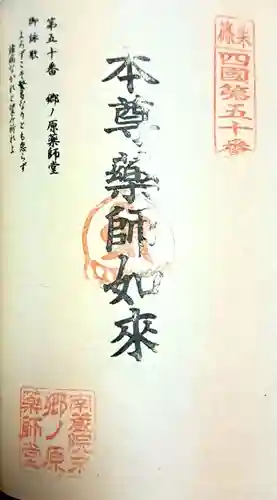 篠栗
四國第五十番
本尊薬師如來
第五十番 郷ノ原薬師堂
御詠歌
よろずこそ繁多なりとも怠らず
諸病なかれと望み祈れよ
南蔵院
郷ノ原
薬師堂